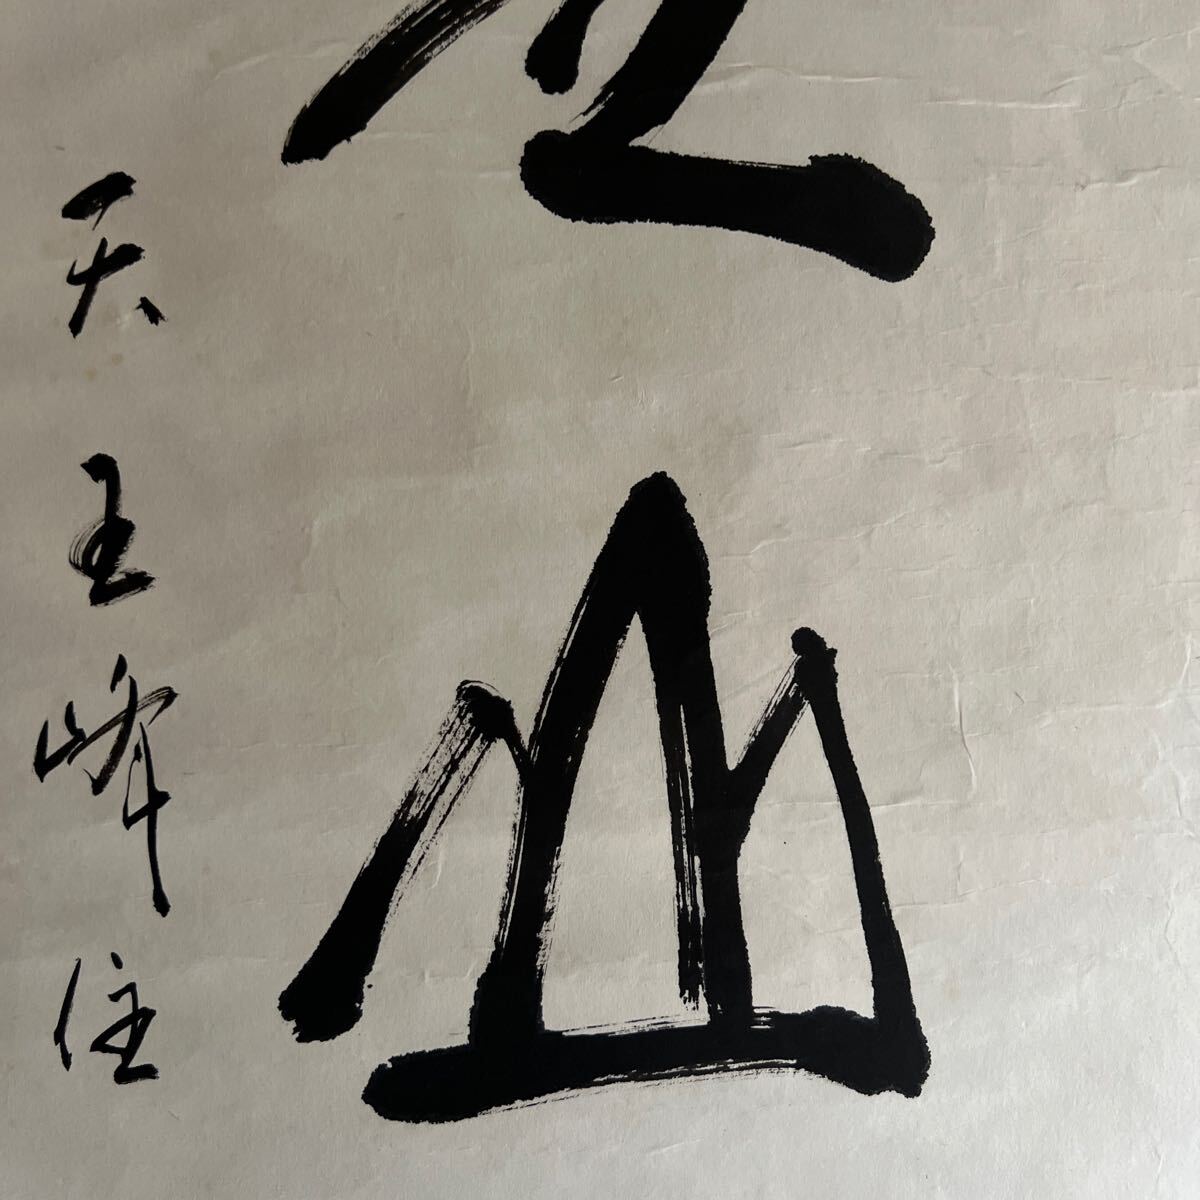 山
天王峰住